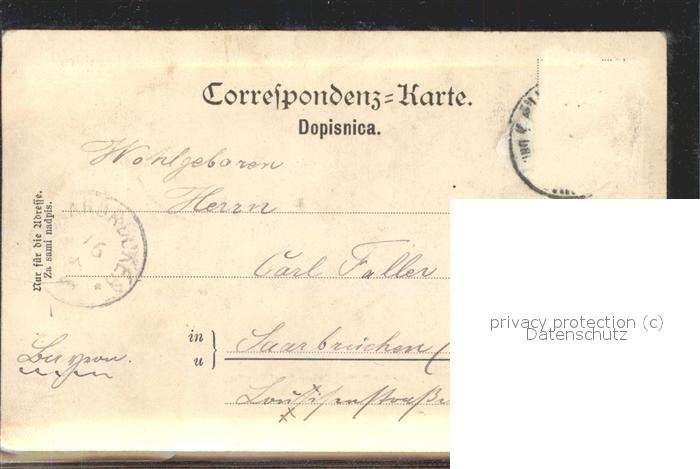 Correspondenz-Karte.
Dopisnica.
Wohlgeboren
Herrn
Carl Faller
in
u
Saarbrücken (
Nur für die Adresse.
Za sami nadpis.
privacy protection (c)
Datenschutz